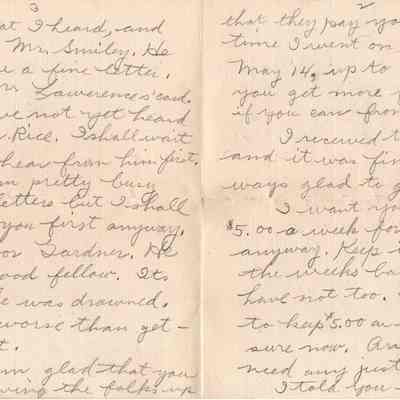 3
at I heard, and
Mr. Smiley. He
e a fine letter.
Lawerence's card.
ve not yet heard
Rice. I shall wait
hear from him first.
m pretty busy
letters but I shall
you first anyway.
oor Gardner. He
ood fellow. Its
e was drowned.
worse than get-
t.
m glad that you
ving the folks up
2
that they pay yo
time I went on
May 14, up to
you get more
if you can from
I received t
and it was fin
ways glad to g
I want yo
$5.00 a week for
anyway. Keep i
the weeks ba
have not too.
to keep $5.00 a
sure now. Are
need any just
I told you